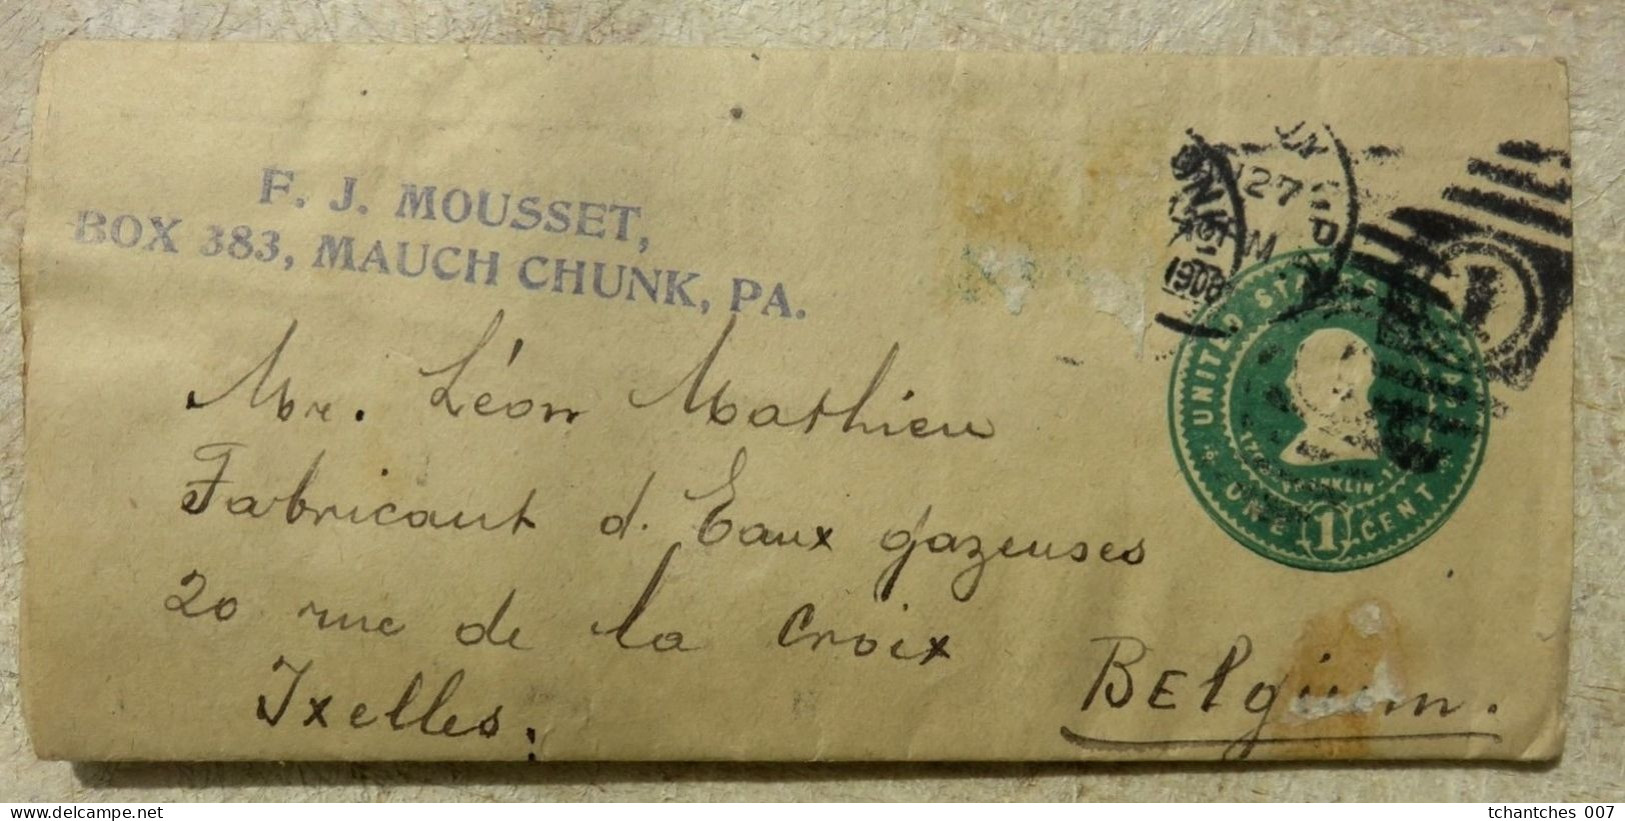 F. J. MOUSSET,
BOX 383, MAUCH CHUNK, PA.
UNK
27
PM
1908
1
UNITED STATES
FRANKLIN
ONE 1 CENT
Mr. Léon Mathieu
Fabricant d. Eaux gazeuses
20 rue de la Croix
Ixelles.
BElgium.
tchantches 007